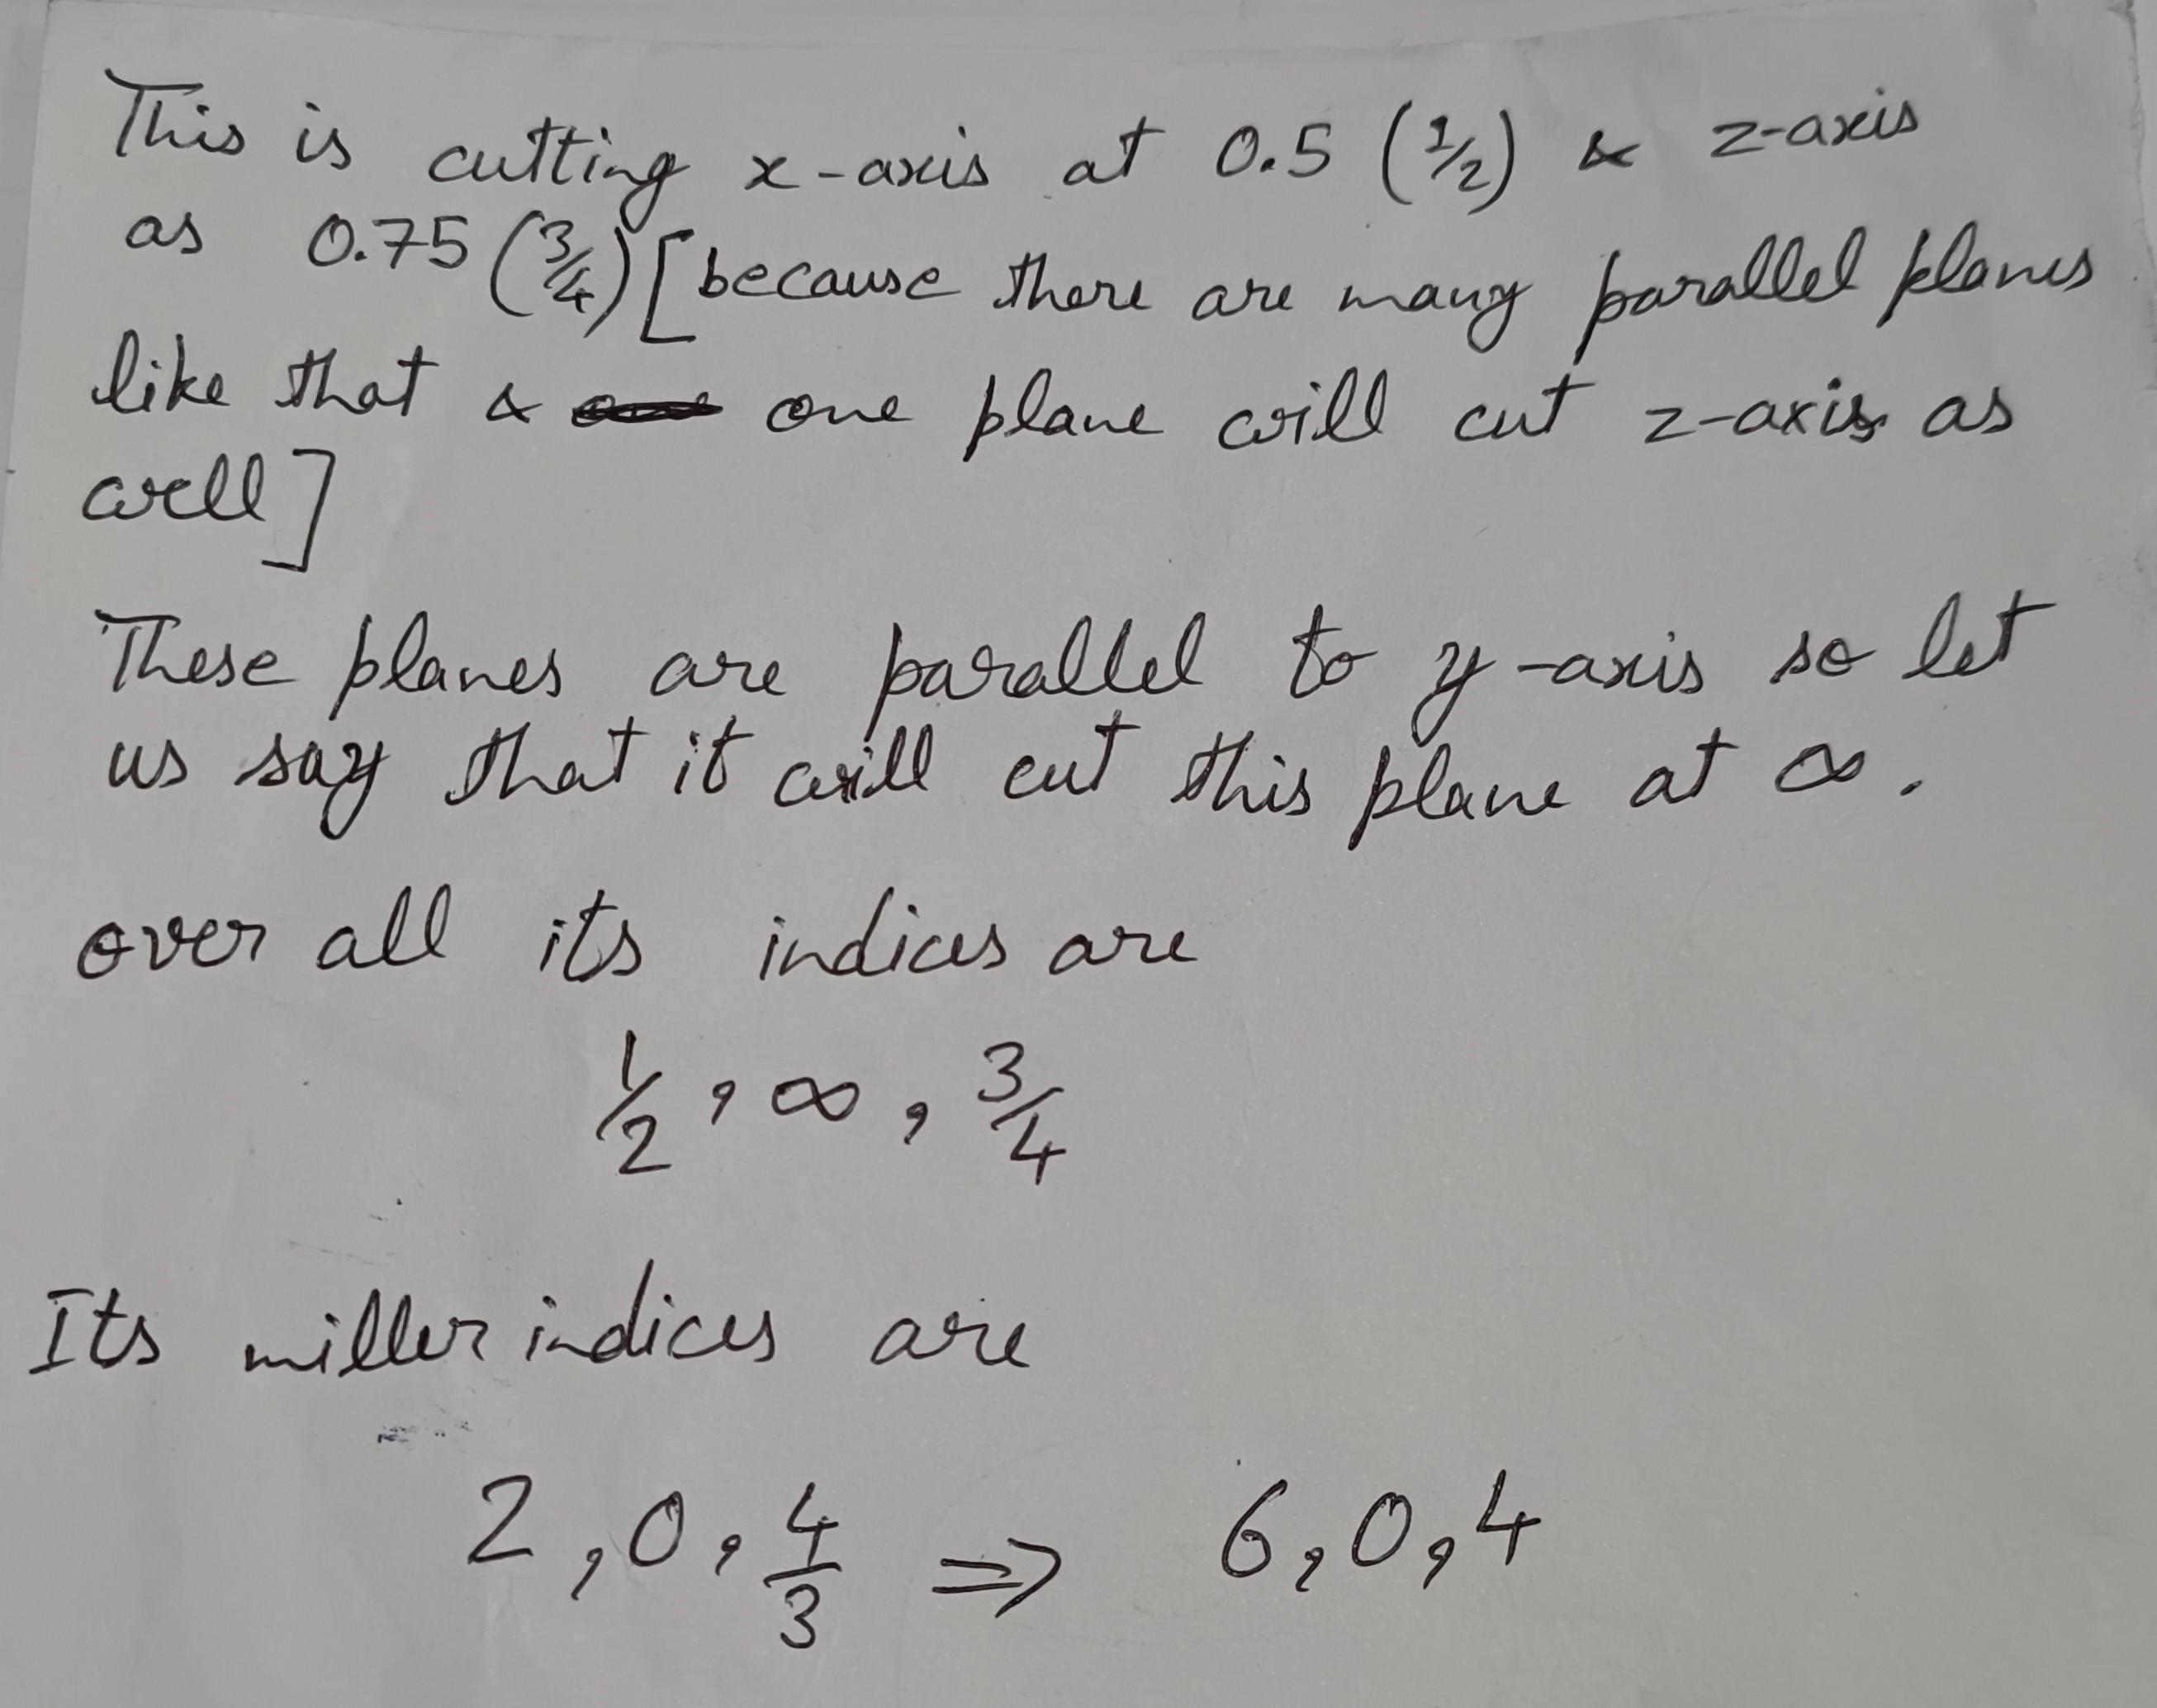 This is cutting x-axis at 0.5 (1/2) & z-axis
as 0.75 (3/4) [because there are many parallel planes
like that & one plane will cut z-axis as
well]
These planes are parallel to y-axis so let
us say that it will cut this plane at ∞.
over all its indices are
1/2, ∞, 3/4
Its miller indices are
2, 0, 4/3 ⇒ 6, 0, 4